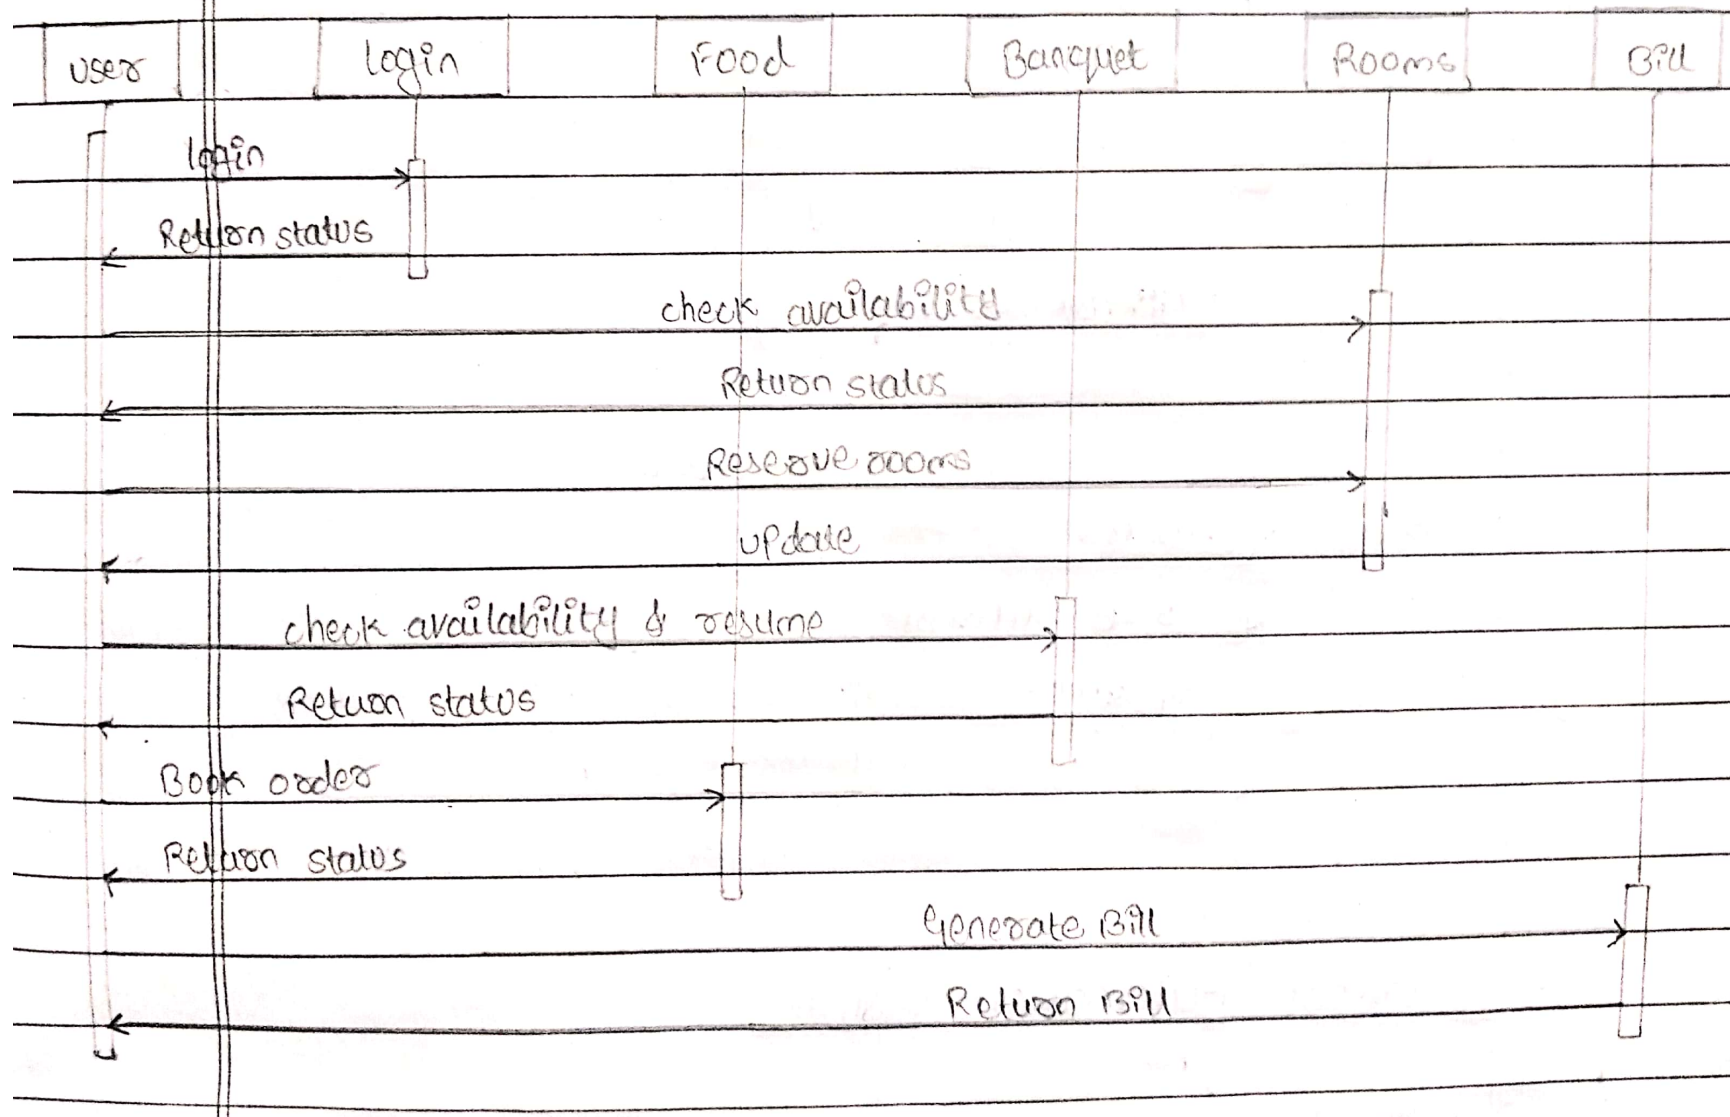 user login Food Banquet Rooms Bill
login
Return status
check availability
Return status
Reserve rooms
update
check availability & resume
Return status
Book order
Return status
Generate Bill
Return Bill